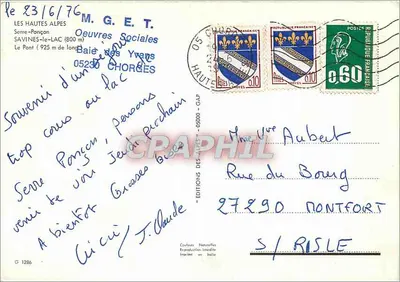 Le 23/6/76
LES HAUTES ALPES
Serre-Ponçon
SAVINES-le-LAC (800 m)
Le Pont (925 m de long)
M. G. E. T.
Oeuvres Sociales
Baie des Yvans
05230 CHORGES
05 CHORGES
HAUTES
0,10
0,10
POSTES
REPUBLIQUE FRANÇAISE
0,60
Souvenir d'un séjour
trop court au lac
Serre Ponçon, pensons
venir te voir Jeudi prochain
A bientôt Grosses bises
J. Claude
CPAPHIL
EDITIONS DES
05000 - GAP
Mme Vve Aubert
Rue du Bourg
27290 MONTFORT
S/ RISLE
Couleurs Naturelles
Reproduction Interdite
Imprimé en Italie